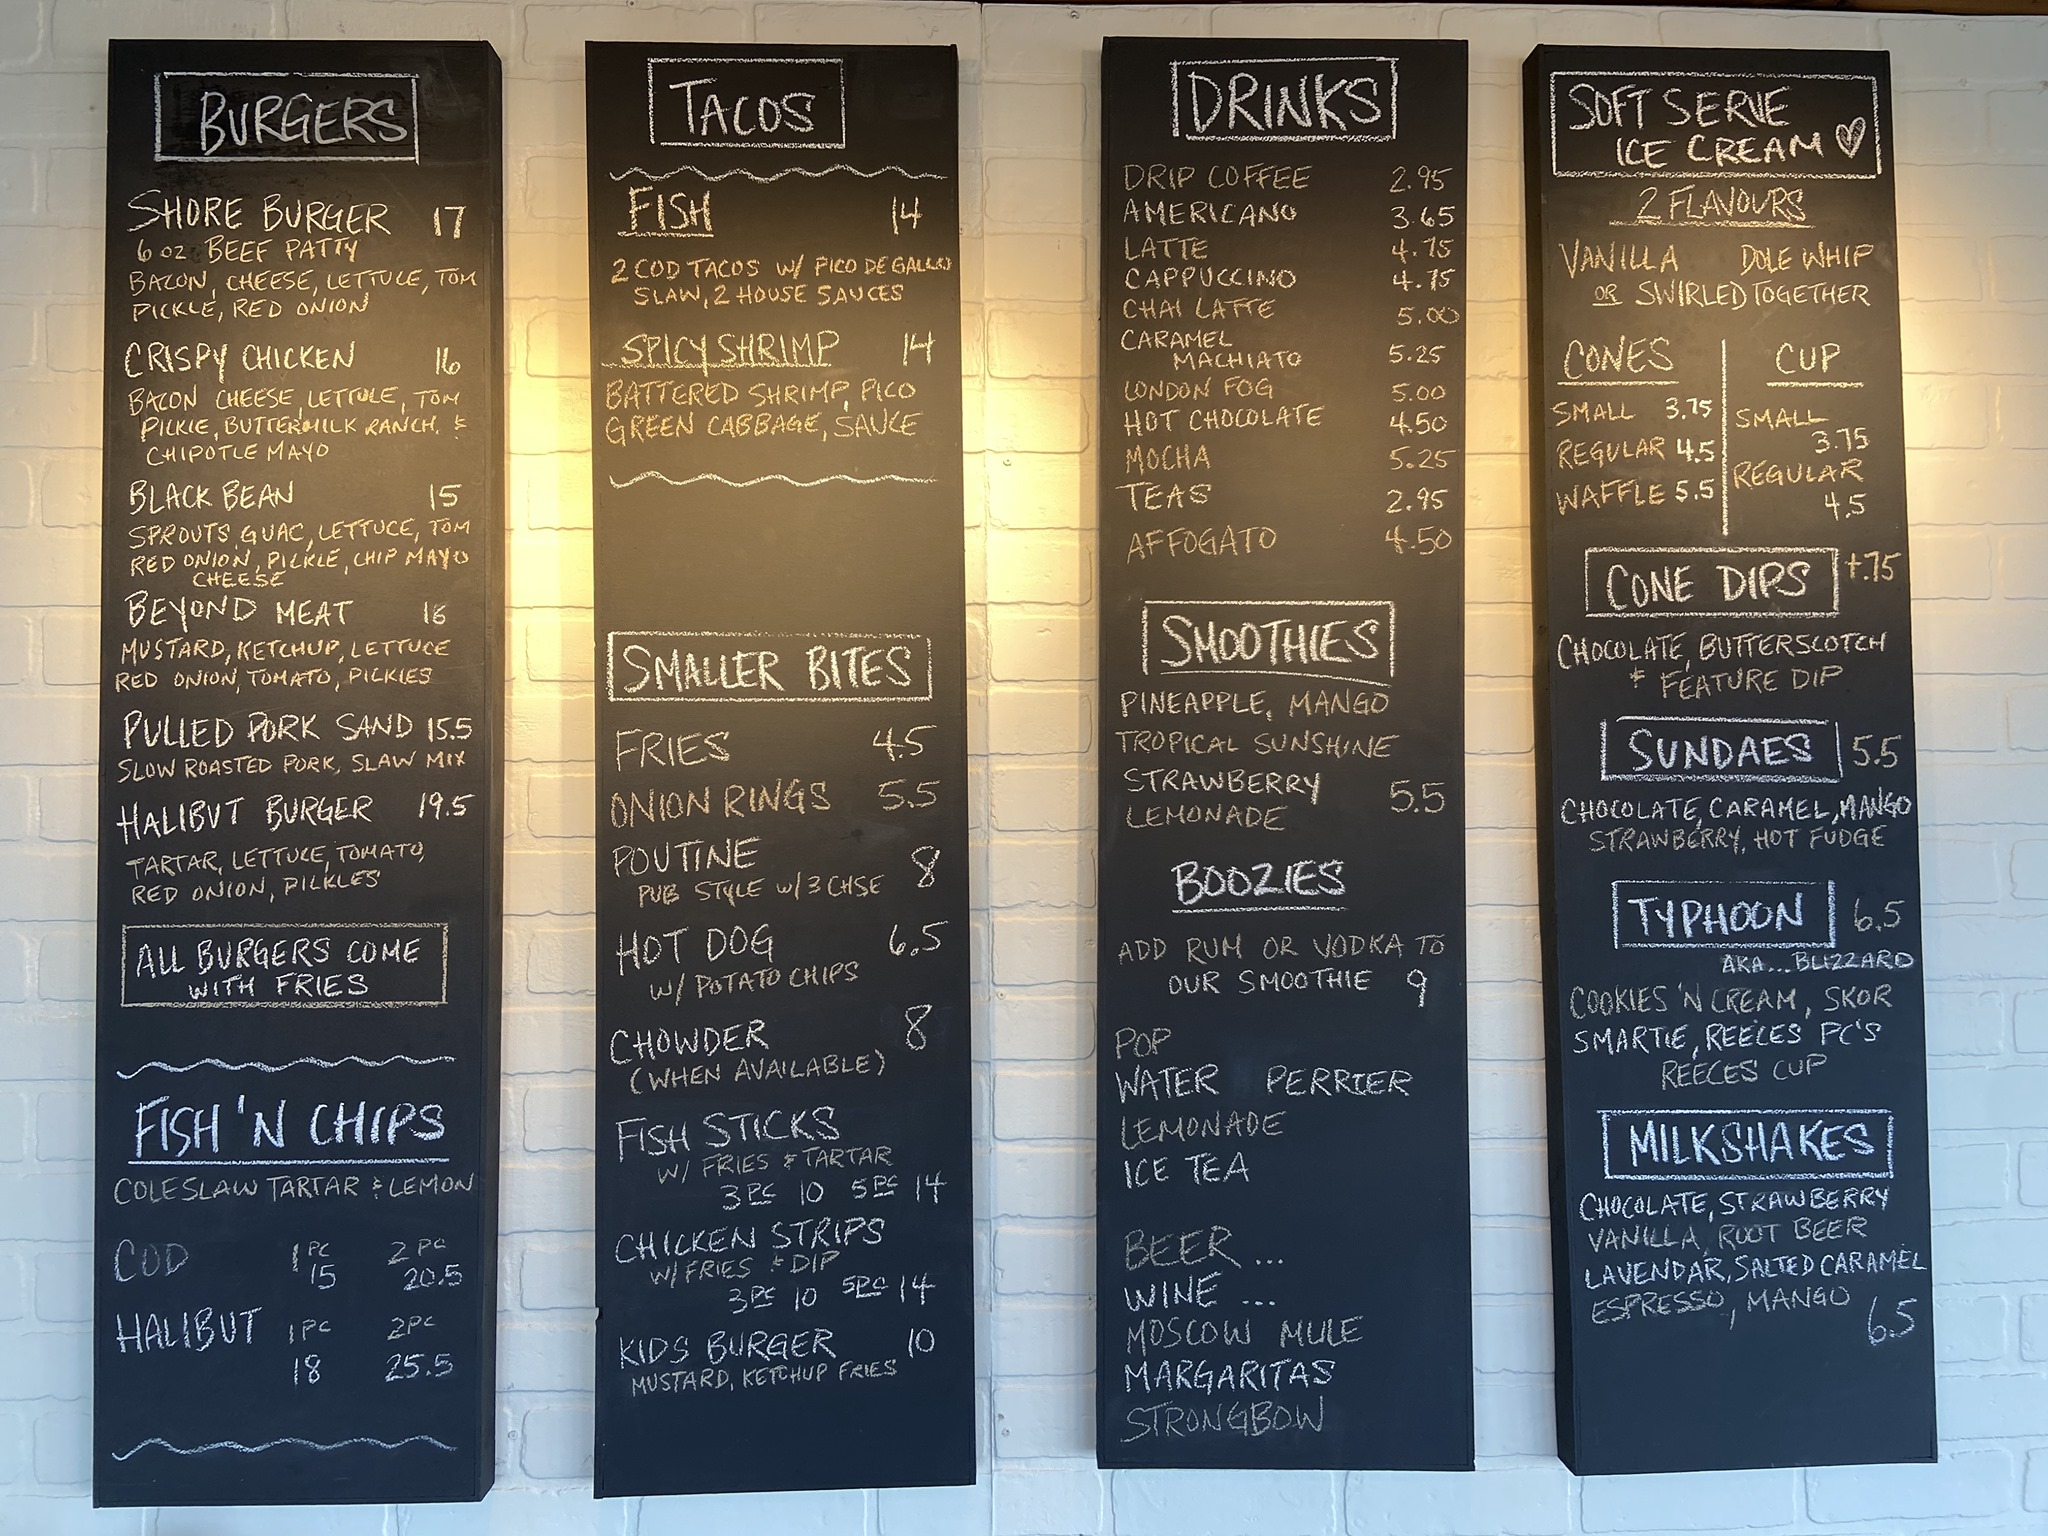 BURGERS
SHORE BURGER 17
6 oz BEEF PATTY
BACON, CHEESE, LETTUCE, TOM
PICKLE, RED ONION
CRISPY CHICKEN 16
BACON CHEESE, LETTUCE, TOM
PICKLE, BUTTERMILK RANCH, &
CHIPOTLE MAYO
BLACK BEAN 15
SPROUTS, GUAC, LETTUCE, TOM
RED ONION, PICKLE, CHIP MAYO
CHEESE
BEYOND MEAT 16
MUSTARD, KETCHUP, LETTUCE
RED ONION, TOMATO, PICKLES
PULLED PORK SAND 15.5
SLOW ROASTED PORK, SLAW MIX
HALIBUT BURGER 19.5
TARTAR, LETTUCE, TOMATO,
RED ONION, PICKLES
ALL BURGERS COME
WITH FRIES
FISH 'N CHIPS
COLESLAW TARTAR & LEMON
COD 1 PC 2 PC
15 20.5
HALIBUT 1 PC 2 PC
18 25.5
TACOS
FISH 14
2 COD TACOS W/ PICO DE GALLO
SLAW, 2 HOUSE SAUCES
SPICY SHRIMP 14
BATTERED SHRIMP, PICO
GREEN CABBAGE, SAUCE
SMALLER BITES
FRIES 4.5
ONION RINGS 5.5
POUTINE 8
PUB STYLE W/ 3 CHSE
HOT DOG 6.5
W/ POTATO CHIPS
CHOWDER 8
(WHEN AVAILABLE)
FISH STICKS
W/ FRIES & TARTAR
3 PC 10 5 PC 14
CHICKEN STRIPS
W/ FRIES & DIP
3 PC 10 5 PC 14
KIDS BURGER 10
MUSTARD, KETCHUP FRIES
DRINKS
DRIP COFFEE 2.95
AMERICANO 3.65
LATTE 4.75
CAPPUCCINO 4.75
CHAI LATTE 5.00
CARAMEL
MACHIATO 5.25
LONDON FOG 5.00
HOT CHOCOLATE 4.50
MOCHA 5.25
TEAS 2.95
AFFOGATO 4.50
SMOOTHIES
PINEAPPLE, MANGO
TROPICAL SUNSHINE
STRAWBERRY
LEMONADE 5.5
BOOZIES
ADD RUM OR VODKA TO
OUR SMOOTHIE 9
POP
WATER PERRIER
LEMONADE
ICE TEA
BEER ...
WINE ...
MOSCOW MULE
MARGARITAS
STRONGBOW
SOFT SERVE
ICE CREAM ♡
2 FLAVOURS
VANILLA DOLE WHIP
OR SWIRLED TOGETHER
CONES
SMALL 3.75
REGULAR 4.5
WAFFLE 5.5
CUP
SMALL
3.75
REGULAR
4.5
CONE DIPS +.75
CHOCOLATE, BUTTERSCOTCH
& FEATURE DIP
SUNDAES 5.5
CHOCOLATE, CARAMEL, MANGO
STRAWBERRY, HOT FUDGE
TYPHOON 6.5
AKA... BLIZZARD
COOKIES 'N CREAM, SKOR
SMARTIE, REECES PC'S
REECES CUP
MILKSHAKES
CHOCOLATE, STRAWBERRY
VANILLA, ROOT BEER
LAVENDAR, SALTED CARAMEL
ESPRESSO, MANGO
6.5